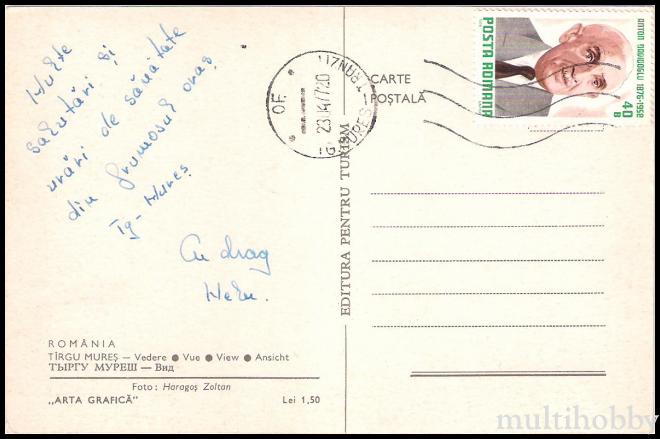 Multe
salutări și
urări de sănătate
din frumosul oraș
Tg-Mureș
Cu drag
Nelu.
ROMÂNIA
TÎRGU MUREȘ — Vedere ● Vue ● View ● Ansicht
ТЫРГУ МУРЕШ — Вид
Foto: Haragoș Zoltan
„ARTA GRAFICĂ" Lei 1,50
EDITURA PENTRU TURISM
CARTE
POȘTALĂ
OF.
MUREȘ
POSTA ROMANA
ANTON DAVIDOGLU 1876-1958
40
B
multihobby